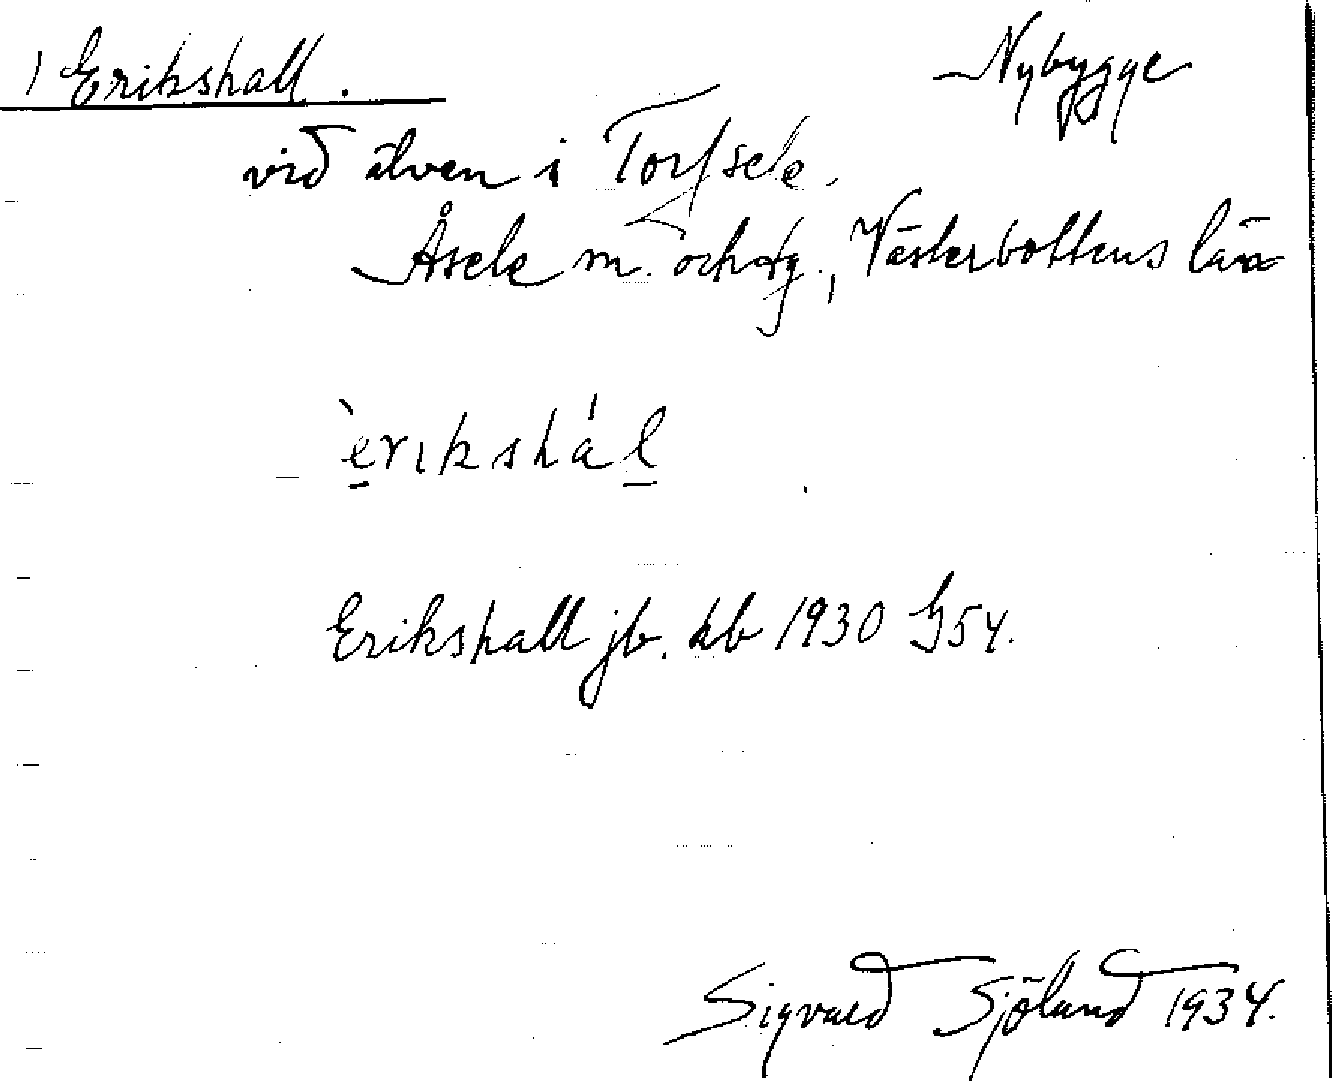 1 Erikshall. Nybygge
vid älven i Torfsele.
Åsele m. och sg., Västerbottens län
`erikshá l
Erikshall jb. kb 1930 §54.
Sigvard Sjöland 1934.